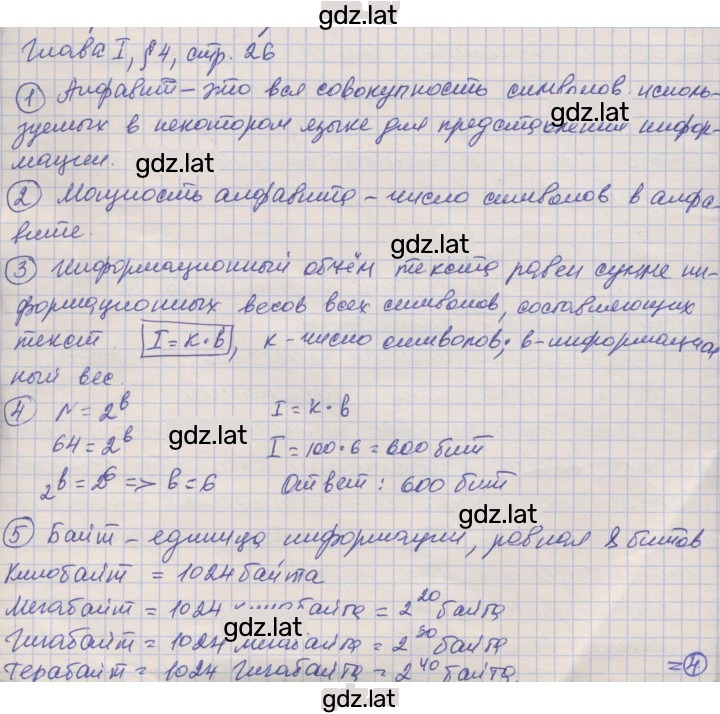 gdz.lat
Глава I, §4, стр. 26
① Алфавит – это вся совокупность символов исполь-
gdz.lat
зуемых в некотором языке для представления инфор-
мации.
gdz.lat
② Мощность алфавита – число символов в алфа-
вите.
gdz.lat
③ Информационный объём текста равен сумме ин-
формационных весов всех символов, составляющих
текст I = K · b, K – число символов; b – информацион
ный вес.
④ N = 2^b I = K · b
gdz.lat
64 = 2^b I = 100 · 6 = 600 бит
2^b = 2^6 => b = 6 Ответ: 600 бит
gdz.lat
⑤ Байт – единица информации, равная 8 битов
Килобайт = 1024 байта
Мегабайт = 1024 килобайта = 2^20 байта
gdz.lat
Гигабайт = 1024 мегабайта = 2^30 байта
Терабайт = 1024 Гигабайта = 2^40 байта.
= ④
gdz.lat